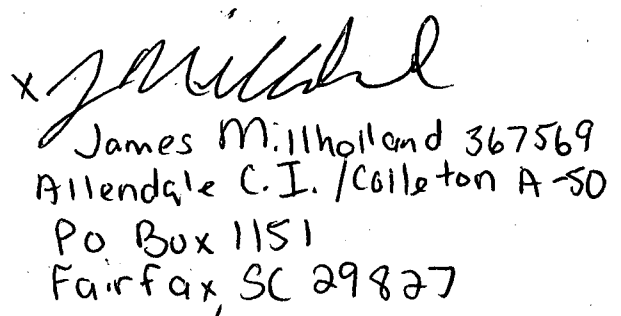 x J Millholland
James Millholland 367569
Allendale C.I./Colleton A-50
PO Box 1151
Fairfax, SC 29827